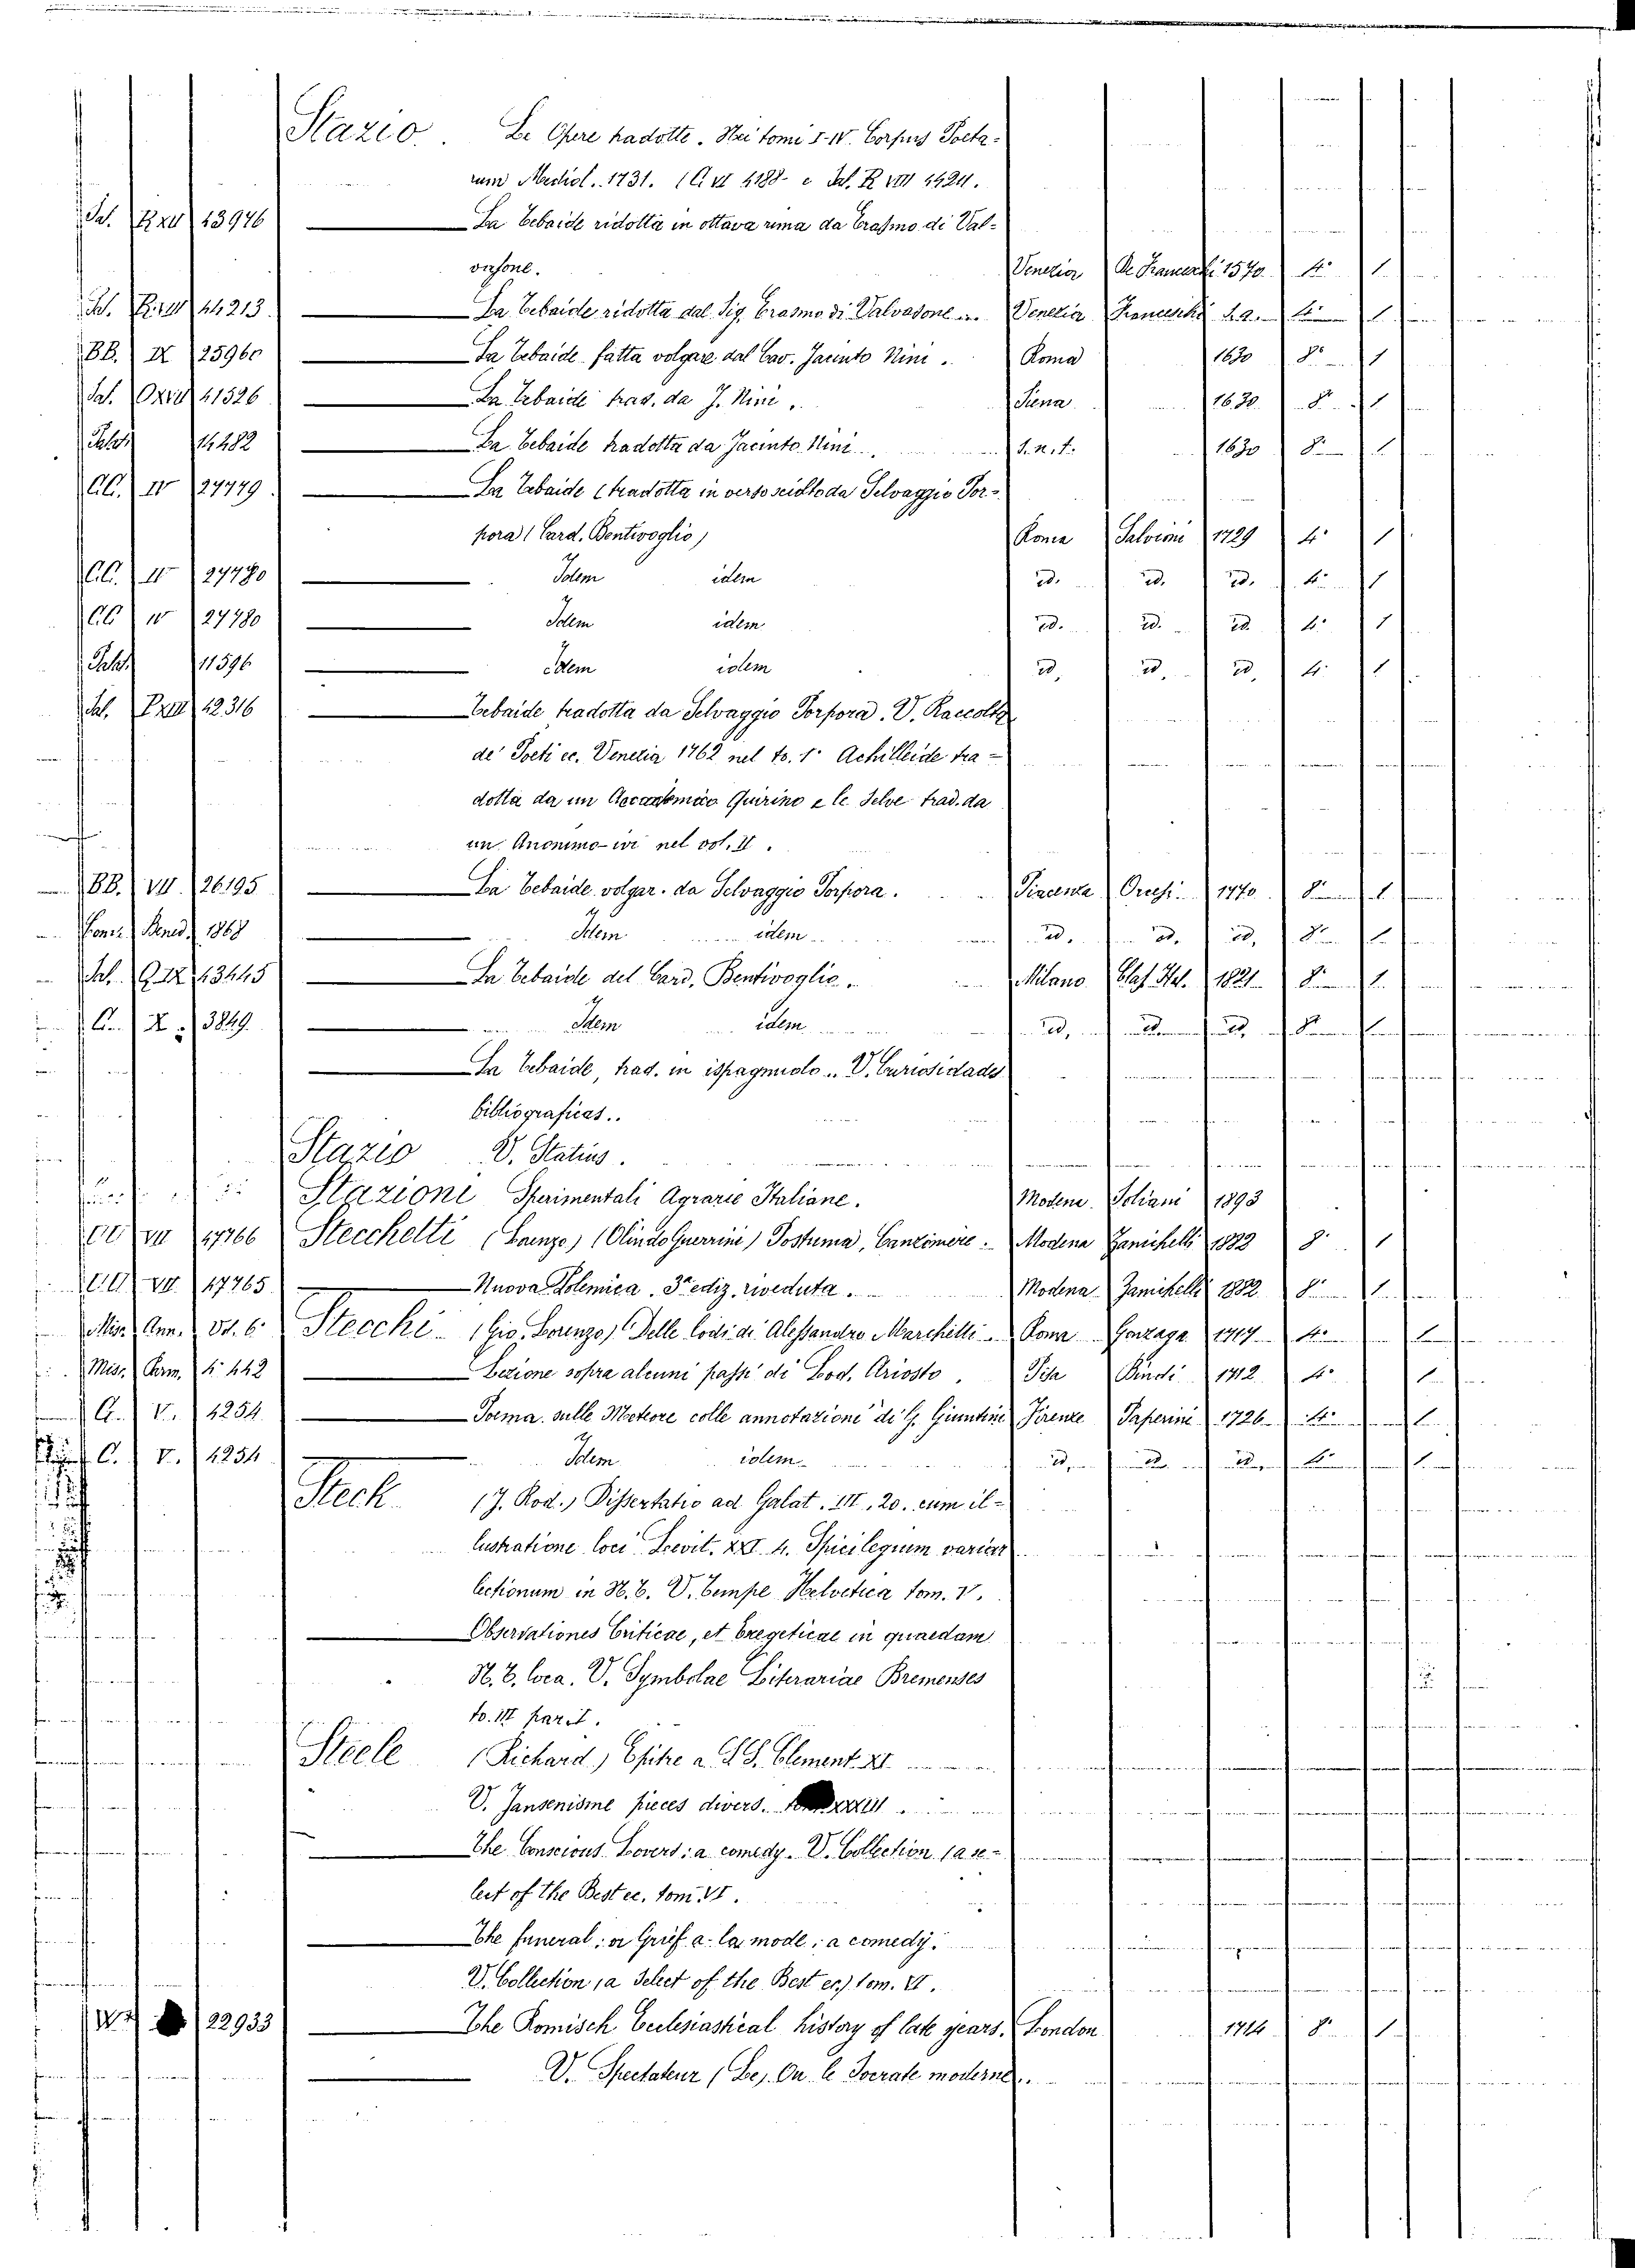 Stazio. Le Opere tradotte. Nei tomi I-IV. Corpus Poeta-
rum Mediol. 1731. (C. VI 4188 e Sal. R VIII 4424.
Sal. 43976 La Tebaide ridotta in ottava rima da Erasmo di Val-
vasone. Venezia De Franceschi 1570 4° 1
Sal. 44213 La Tebaide ridotta dal Sig. Erasmo di Valvasone Venezia Franceschi s.a. 4° 1
BB. IX 25960 La Tebaide fatta volgare dal Cav. Jacinto Nini. Roma 1630 8° 1
Sal. 41526 La Tebaide trad. da J. Nini. Siena 1630 8° 1
14482 La Tebaide tradotta da Jacinto Nini. s.n.t. 1630 8° 1
CC. IV 27779 La Tebaide (tradotta in verso sciolto da Selvaggio Por-
pora (Card. Bentivoglio) Roma Salvioni 1729 4° 1
CC. IV 27780 Idem idem id. id. id. 4° 1
CC IV 27780 Idem idem id. id. id. 4° 1
11596 Idem idem id. id. id. 4° 1
Sal. 42316 Tebaide tradotta da Selvaggio Porpora. V. Raccolta
de' Poeti ec. Venezia 1762 nel to. 1° Achilleide tra-
dotta da un Accademico Quirino e le Selve trad. da
un Anonimo ivi nel vol. II.
BB. VII 26195 La Tebaide volgar. da Selvaggio Porpora. Piacenza Orcesi 1770 8° 1
Bened. 1868 Idem idem id. id. id. 8° 1
Sal. Q. IX 43445 La Tebaide del Card. Bentivoglio. Milano Clas. Ital. 1821 8° 1
C. X. 3849 Idem idem id. id. id. 8° 1
La Tebaide, trad. in ispagnuolo. V. Curiosidades
bibliograficas.
Stazio V. Statius.
Stazioni Sperimentali Agrarie Italiane. Modena Soliani 1893
VII 47766 Stecchetti (Lorenzo) (Olindo Guerrini) Postuma, Canzoniere. Modena Zanichelli 1882 8° 1
VII 47765 Nuova Polemica. 3ª ediz. riveduta. Modena Zanichelli 1882 8° 1
Misc. Ann. Vol. 6 Stecchi (Gio. Lorenzo) Delle lodi di Alessandro Marchetti Roma Gonzaga 1717 4° 1
Misc. 4° 442 Lezione sopra alcuni passi di Lod. Ariosto. Pisa Bindi 1712 4° 1
C. V. 4254 Poema sulle Meteore colle annotazioni di G. Giuntini Firenze Paperini 1726 4° 1
C. V. 4254 Idem idem id. id. id. 4° 1
Steck (J. Rod.) Dissertatio ad Galat. III, 20. cum il-
lustratione loci Levit. XXI 4. Spicilegium variar
lectionum in N.T. V. Tempe Helvetica tom. V.
Observationes Criticae, et Exegeticae in quaedam
N.T. loca. V. Symbolae Literariae Bremenses
to. III par. I.
Steele (Richard) Epitre a S. S. Clement XI
V. Jansenisme pieces divers.
The Conscious Lovers: a comedy. V. Collection (a se-
lect of the Best ec. tom. VI.
The funeral: or Grief a-la mode: a comedy.
V. Collection (a Select of the Best ec.) tom. VI.
22933 The Romisch Ecclesiastical history of late years. London 1714 8° 1
V. Spectateur (Le). Ou le Socrate moderne.